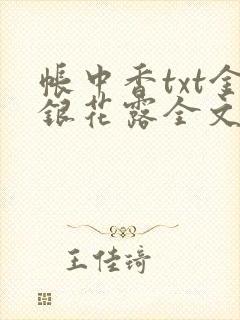 帳中香txt金
銀花露全文
王佳琦